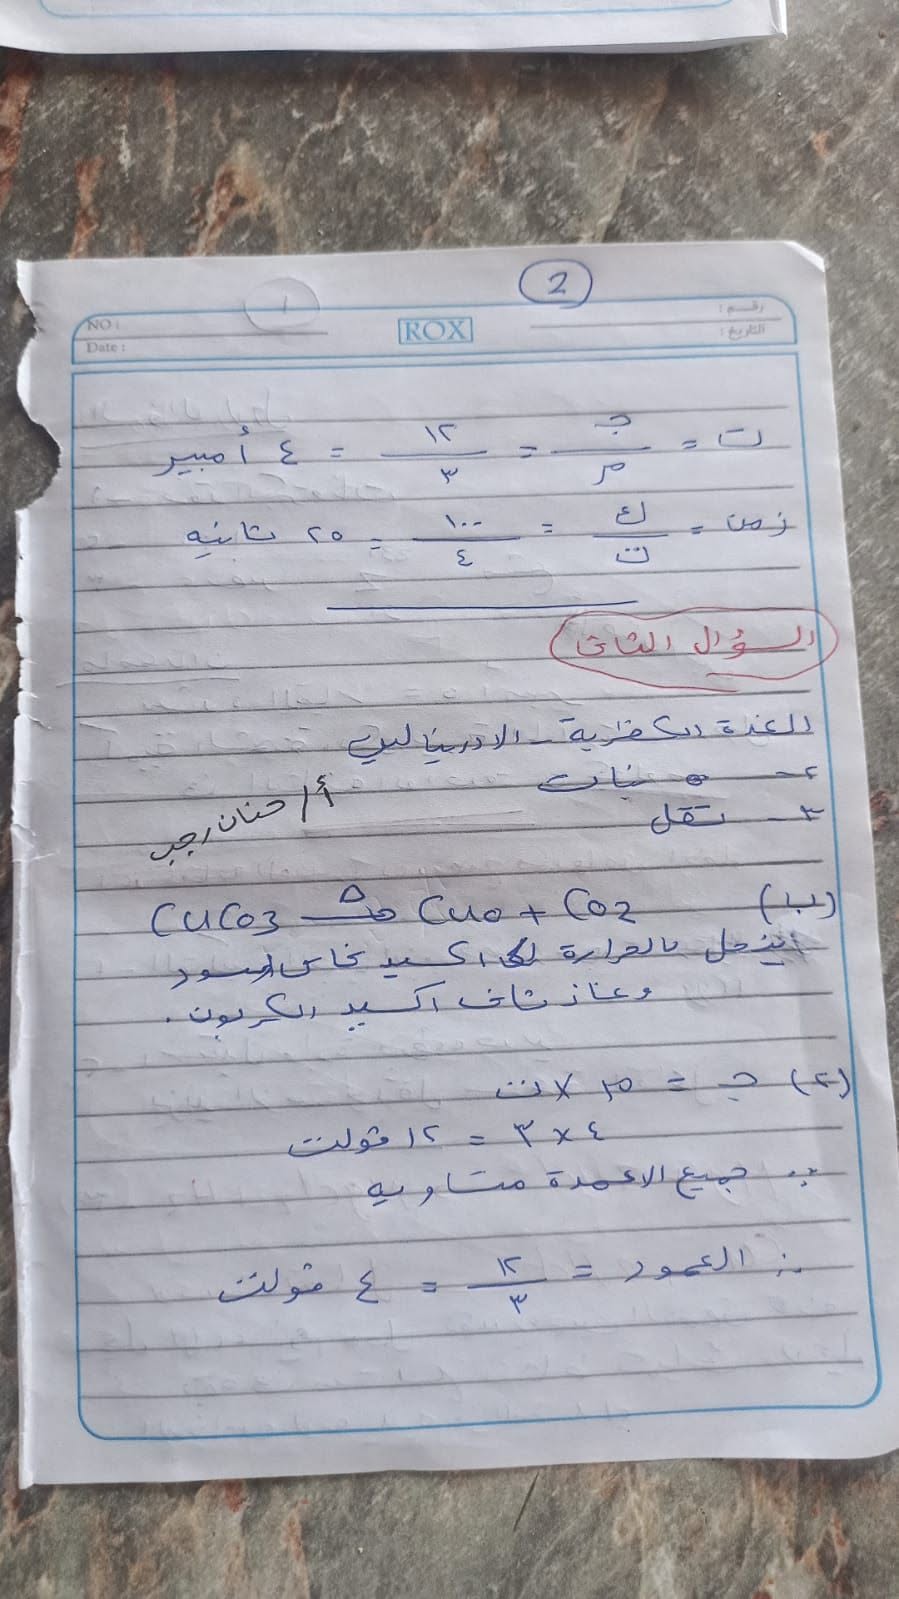 2
NO :
ROX
رقم :
Date :
التاريخ :
ت = ج / م = ١٢ / ٣ = ٤ أمبير
زمن = ك / ت = ١٠٠ / ٤ = ٢٥ ثانيه
السؤال الثانى
الغدة الكظرية - الادرينالين
٢- بنات
٣- تقل
أ/ حنان رجب
(ب) CuCo3 Δ→ Cuo + Co2
ينحل بالحرارة اكسيد نحاس اسود
وغاز ثانى اكسيد الكربون .
(٢) ج = م × ت
٤ × ٣ = ١٢ فولت
∵ جميع الاعمدة متساويه
∴ العمود = ١٢ / ٣ = ٤ فولت